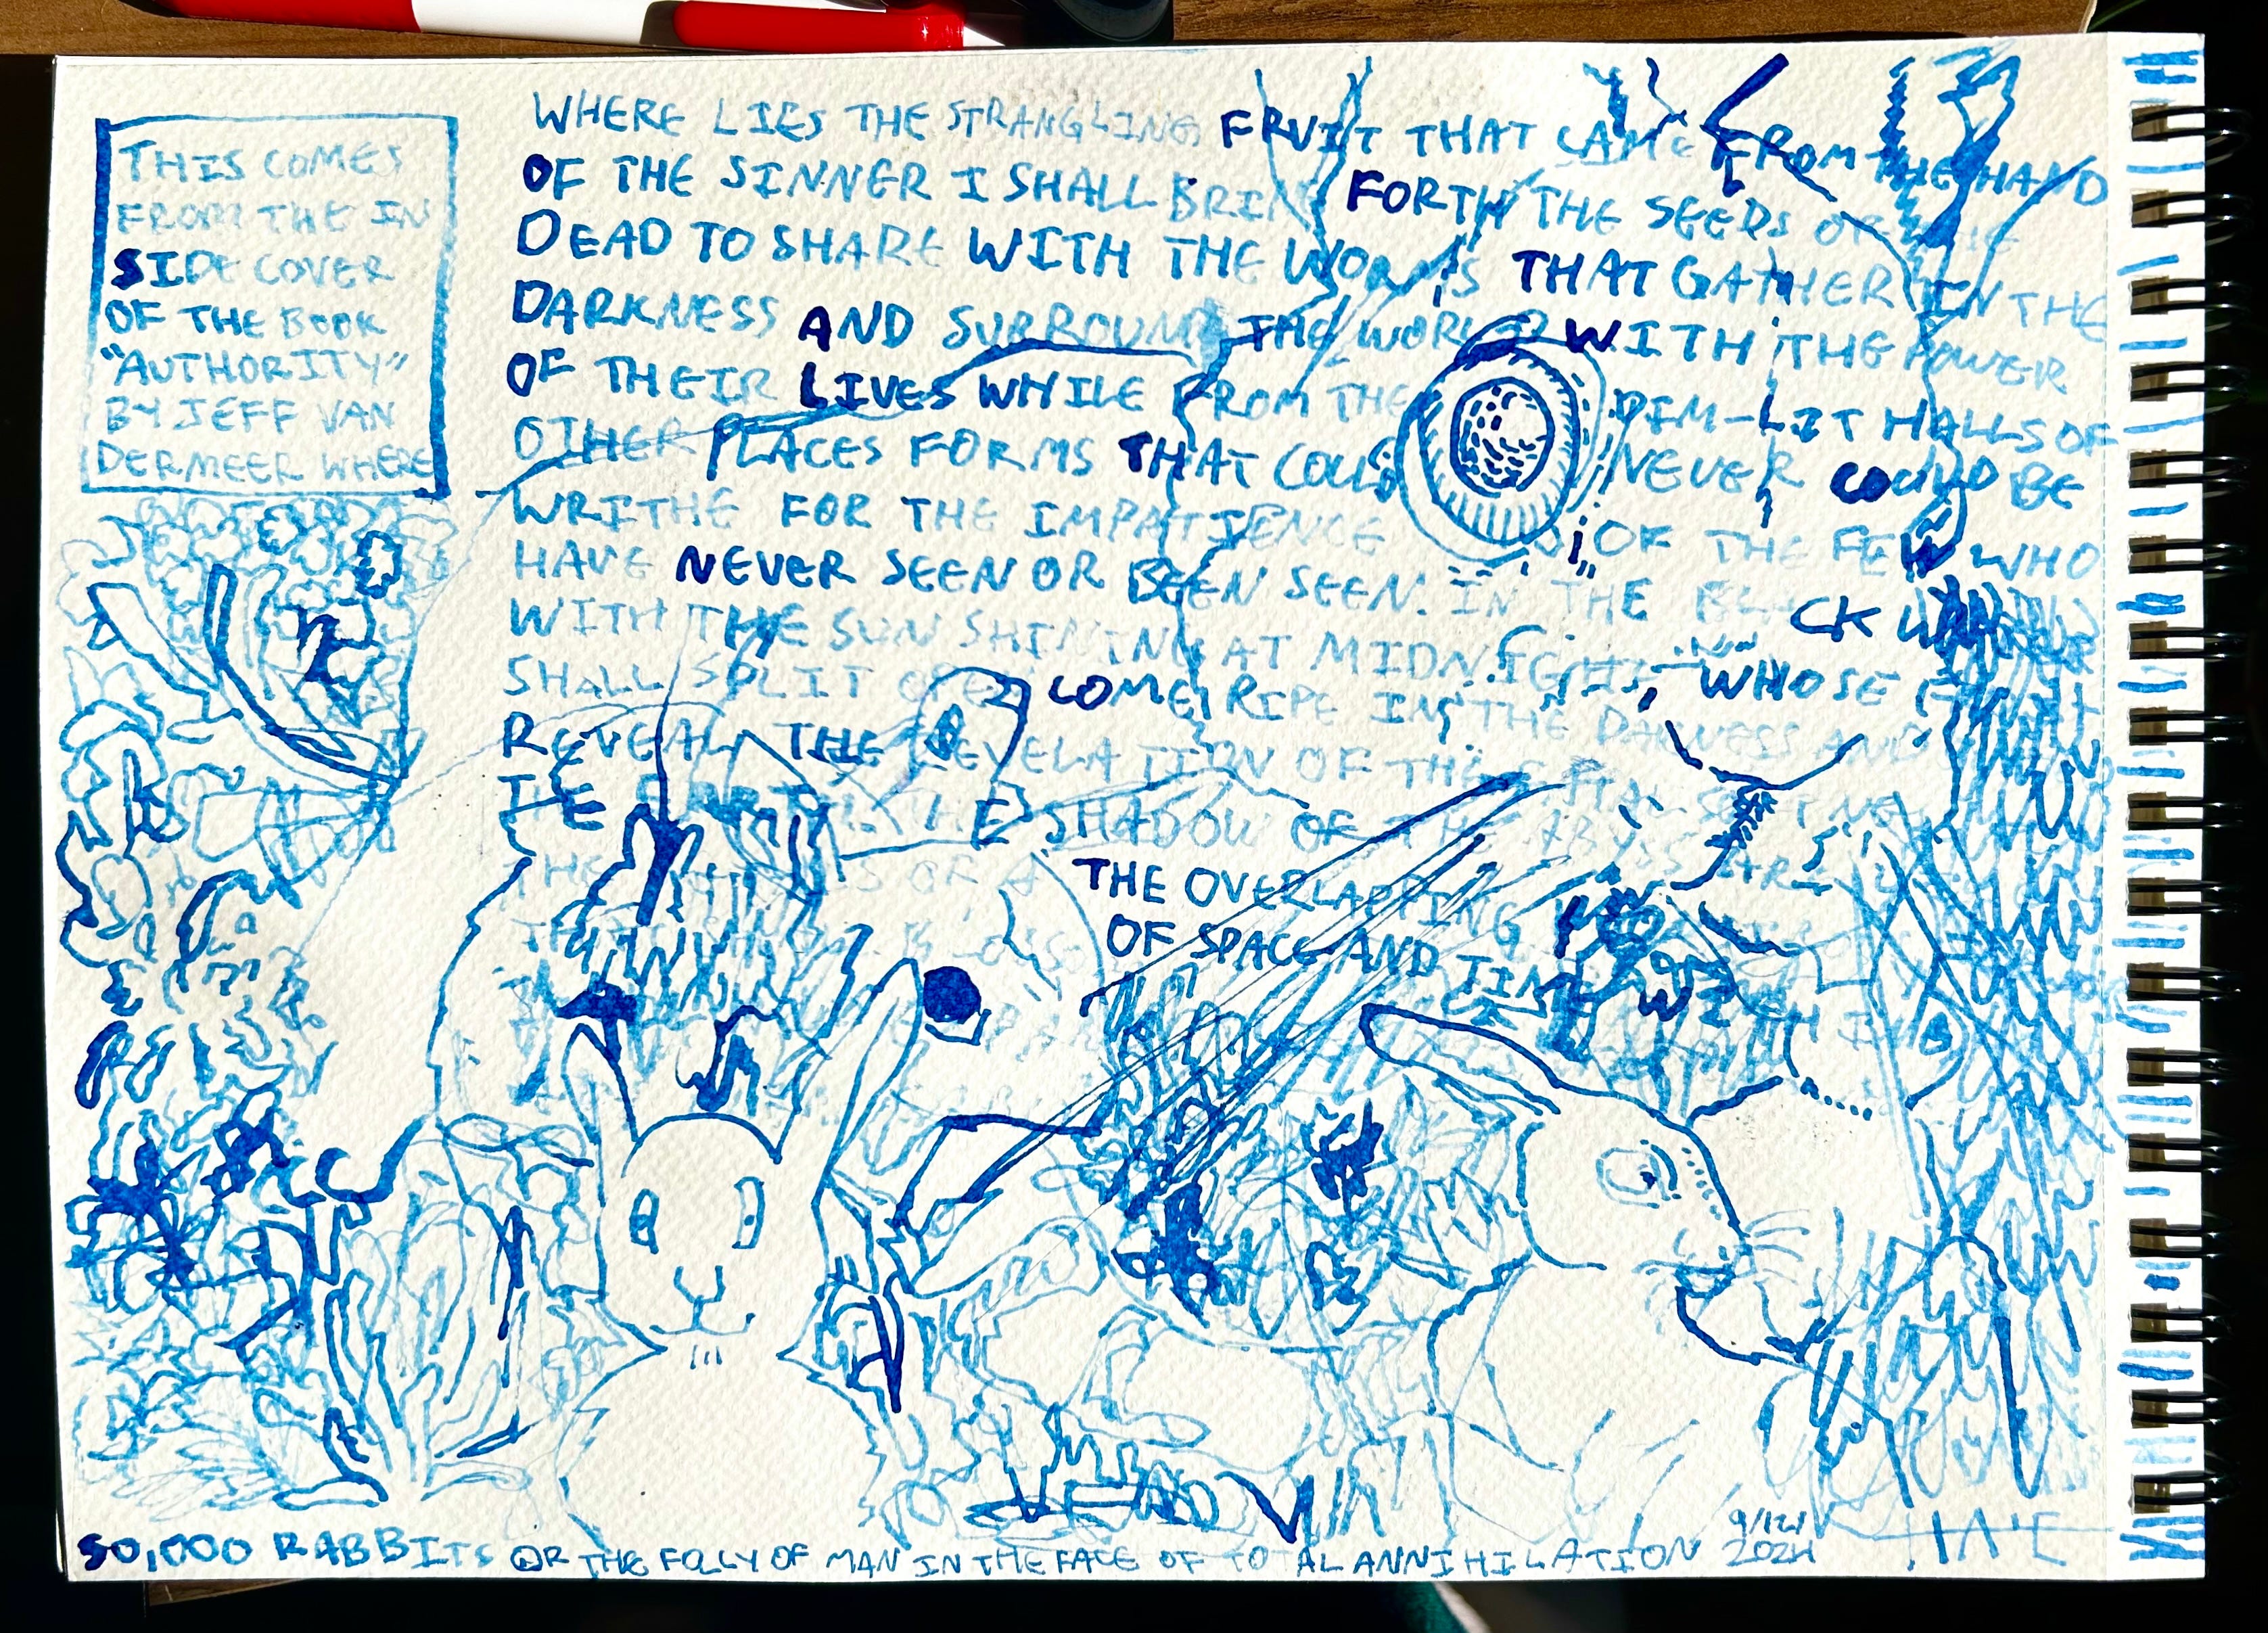 THIS COMES
FROM THE IN
SIDE COVER
OF THE BOOK
"AUTHORITY"
BY JEFF VAN
DERMEER WHERE
WHERE LIES THE STRANGLING FRUIT THAT CAME FROM THE HAND
OF THE SINNER I SHALL BRING FORTH THE SEEDS OF THE
DEAD TO SHARE WITH THE WORMS THAT GATHER IN THE
DARKNESS AND SURROUND THE WORLD WITH THE POWER
OF THEIR LIVES WHILE FROM THE DIM-LIT HALLS OF
OTHER PLACES FORMS THAT COULD NEVER COULD BE
WRITHE FOR THE IMPATIENCE OF THE FEW WHO
HAVE NEVER SEEN OR BEEN SEEN. IN THE BLACK
WITH THE SUN SHINING AT MIDNIGHT, WHOSE
SHALL SPLIT OPEN COME RIPE IN THE DARNESS AND
REVEAL THE REVELATION OF THE
THE SHADOW OF THE ABYSS ARE
THE OF A
THE OVERLAPPING
OF SPACE AND TIME
50,000 RABBITS OR THE FOLLY OF MAN IN THE FACE OF TOTAL ANNIHILATION
2024